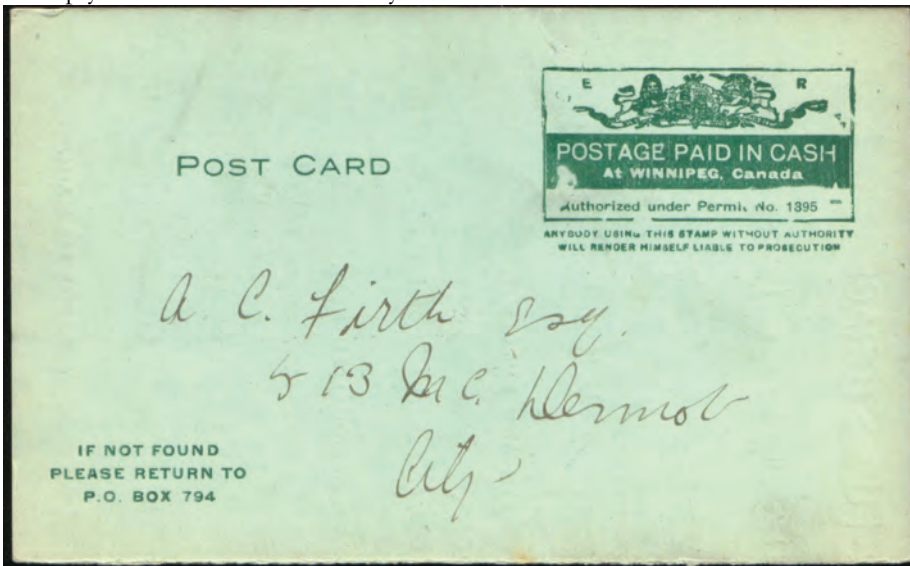 E R
POSTAGE PAID IN CASH
At WINNIPEG, Canada
Authorized under Permit No. 1395
ANYBODY USING THIS STAMP WITHOUT AUTHORITY
WILL RENDER HIMSELF LIABLE TO PROSECUTION
POST CARD
A. C. Firth Esq.
513 Mc. Dermot
City
IF NOT FOUND
PLEASE RETURN TO
P.O. BOX 794